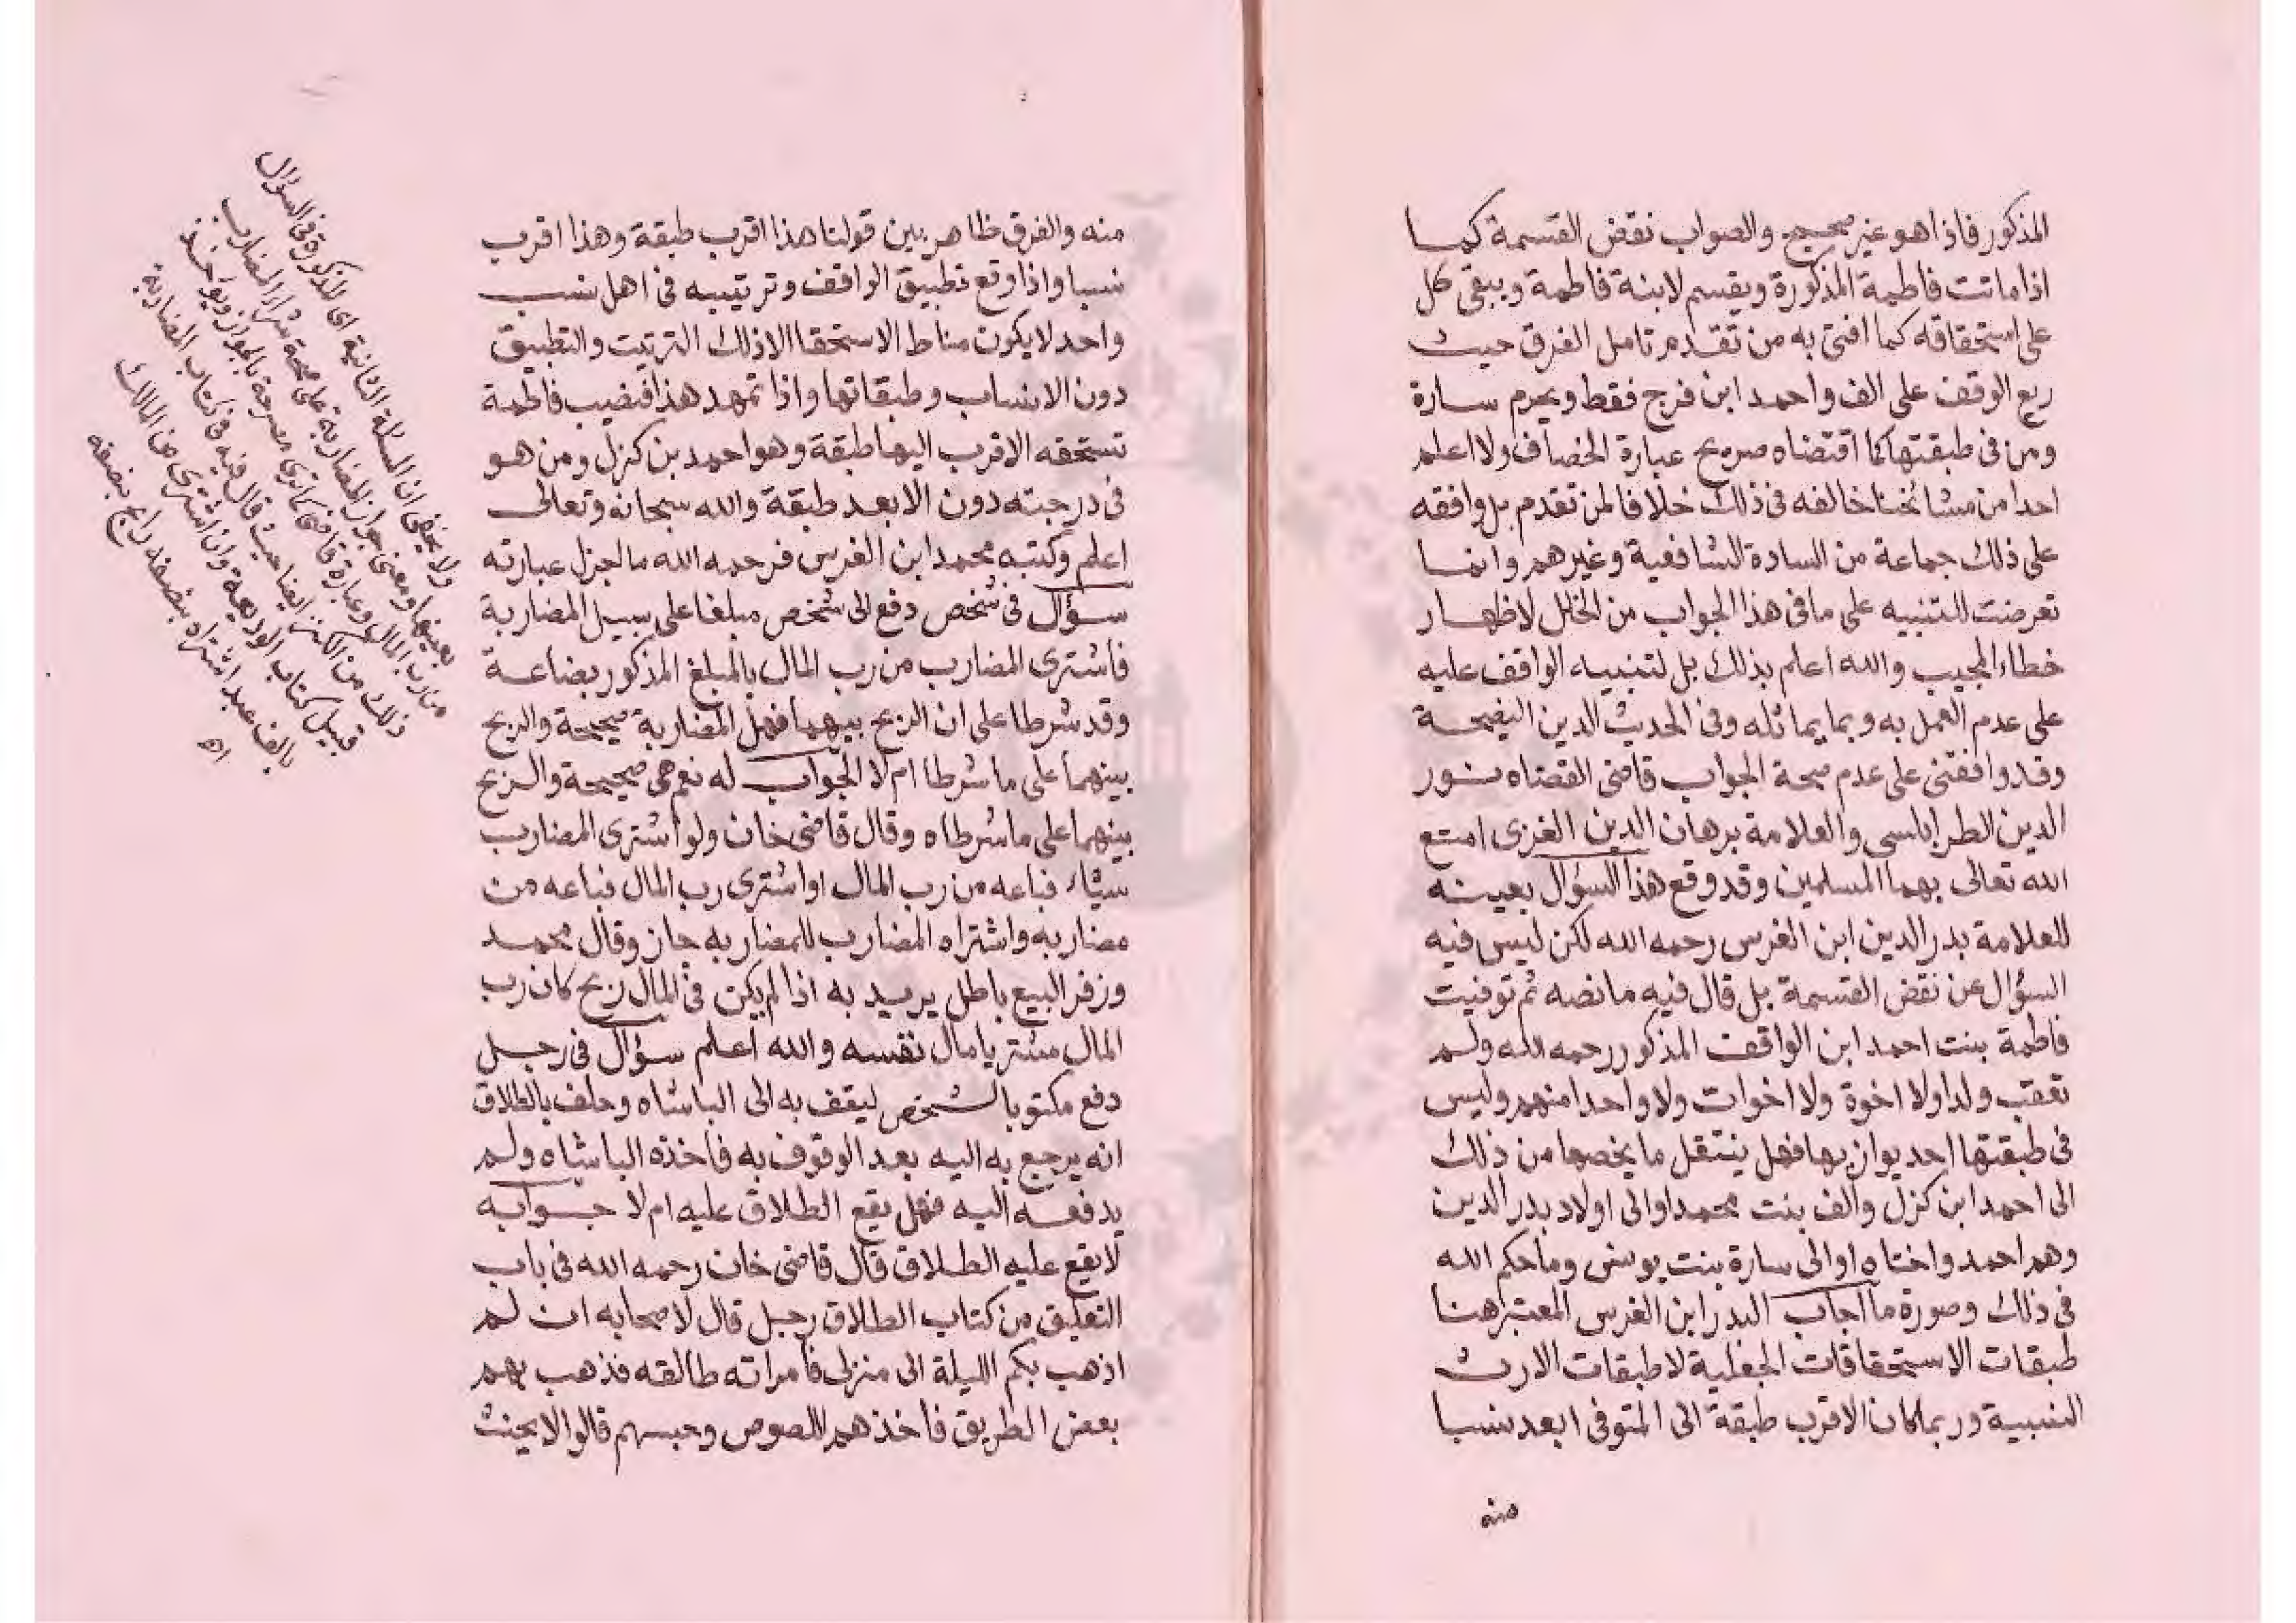 المذكور فاذا هو غير صحيح والصواب نقض القسمة كما
اذا ماتت فاطمة المذكورة ويقسم لابنة فاطمة ويبقى كل
على استحقاقه كما افتى به من تقدم تامل الفرق حيث
ريع الوقف على الف واحمد ابن فرج فقط ويحرم سارة
ومن فى طبقتها كما اقتضاه صريح عبارة الخصاف ولا اعلم
احدا من مشائخنا خالفه فى ذلك خلافا لمن تقدم بل وافقه
على ذلك جماعة من السادة الشافعية وغيرهم وانما
تعرضت للتنبيه على ما فى هذا الجواب من الخلل لا ظهار
خطاء المجيب والله اعلم بذلك بل لتنبيه الواقف عليه
على عدم العمل به وبما يماثله وفى الحديث الدين النصيحة
وقد وافقنى على عدم صحة الجواب قاضى القضاه نور
الدين الطرابلسى والعلامة برهان الدين الغزى امتع
الله تعالى بهما المسلمين وقد وقع هذا السؤال بعينه
للعلامة بدر الدين ابن الغرس رحمه الله لكن ليس فيه
السؤال عن نقض القسمة بل قال فيه ما نصه ثم توفيت
فاطمة بنت احمد ابن الواقف المذكور رحمه الله ولم
تعقب ولدا ولا اخوة ولا اخوات ولا واحدا منهم وليس
فى طبقتها احد يوازيها فهل ينتقل ما يخصها من ذلك
الى احمد ابن كزل والف بنت محمد او الى اولاد بدر الدين
وهم احمد واختاه او الى سارة بنت يونس وما حكم الله
فى ذلك وصورة ما اجاب البدر ابن الغرس المعتبر هنا
طبقات الاستحقاقات الجعلية لا طبقات الارث
النسبية وربما كان الاقرب طبقة الى المتوفى ابعد نسبا
منه
منه والفرق ظاهر بين قولنا هذا اقرب طبقة وهذا اقرب
نسبا واذا وقع تطبيق الواقف وترتيبه فى اهل نسب
واحد لا يكون مناط الاستحقا الا ذلك الترتيت والتطبيق
دون الانساب وطبقاتها واذا تمهد هذا فنصيب فاطمة
تستحقه الاقرب اليها طبقة وهو احمد بن كزل ومن هو
فى درجته دون الابعد طبقة والله سبحانه وتعالى
اعلم وكتبه محمد ابن الغرس فرحمه الله ما اجزل عبارته
سؤال فى شخص دفع الى شخص مبلغا على سبيل المضاربة
فاشترى المضارب من رب المال بالمبلغ المذكور بضاعة
وقد شرطا على ان الربح بينهما فهل المضاربة صحيحة والربح
بينهما على ما شرطا ام لا الجواب له نعم هى صحيحة والربح
بينهما على ما شرطاه وقال قاضى خان ولو اشترى المضارب
شيئاء فباعه من رب المال او اشترى رب المال فباعه من
مضاربه واشتراه المضارب للمضاربه جاز وقال محمد
وزفر البيع باطل يريد به اذا لم يكن فى المال ربح كان رب
المال مشتريا مال نفسه والله اعلم سؤال فى رجل
دفع مكتوبا لشخص ليقف به الى الباشاه وحلف بالطلاق
انه يرجع به اليه بعد الوقوف به فاخذه الباشاه ولم
يدفعه اليه فهل يقع الطلاق عليه ام لا جوابه
لا يقع عليه الطلاق قال قاضى خان رحمه الله فى باب
التعليق من كتاب الطلاق رجل قال لاصحابه ان لم
اذهب بكم الليلة الى منزلى فامراته طالقه فذهب بهم
بعض الطريق فاخذهم اللصوص وحبسهم قالوا لا يحنث
ولا يخفى ان المسئلة الثانية اى المذكورة فى السؤال
بعينها ومعنى جواز المضاربة على صحة شراء المضارب
من رب المال وعبارة قاضى كما ترى مصرحة بالجواز ويؤخذ
ذلك من الكنز ايضا حيث قال فيه فى كتاب المضاربة
قبيل كتاب الوديعة وان اشترى من المالك
بالف عبد اشتراه بنصفه رابح بنصفه
اه